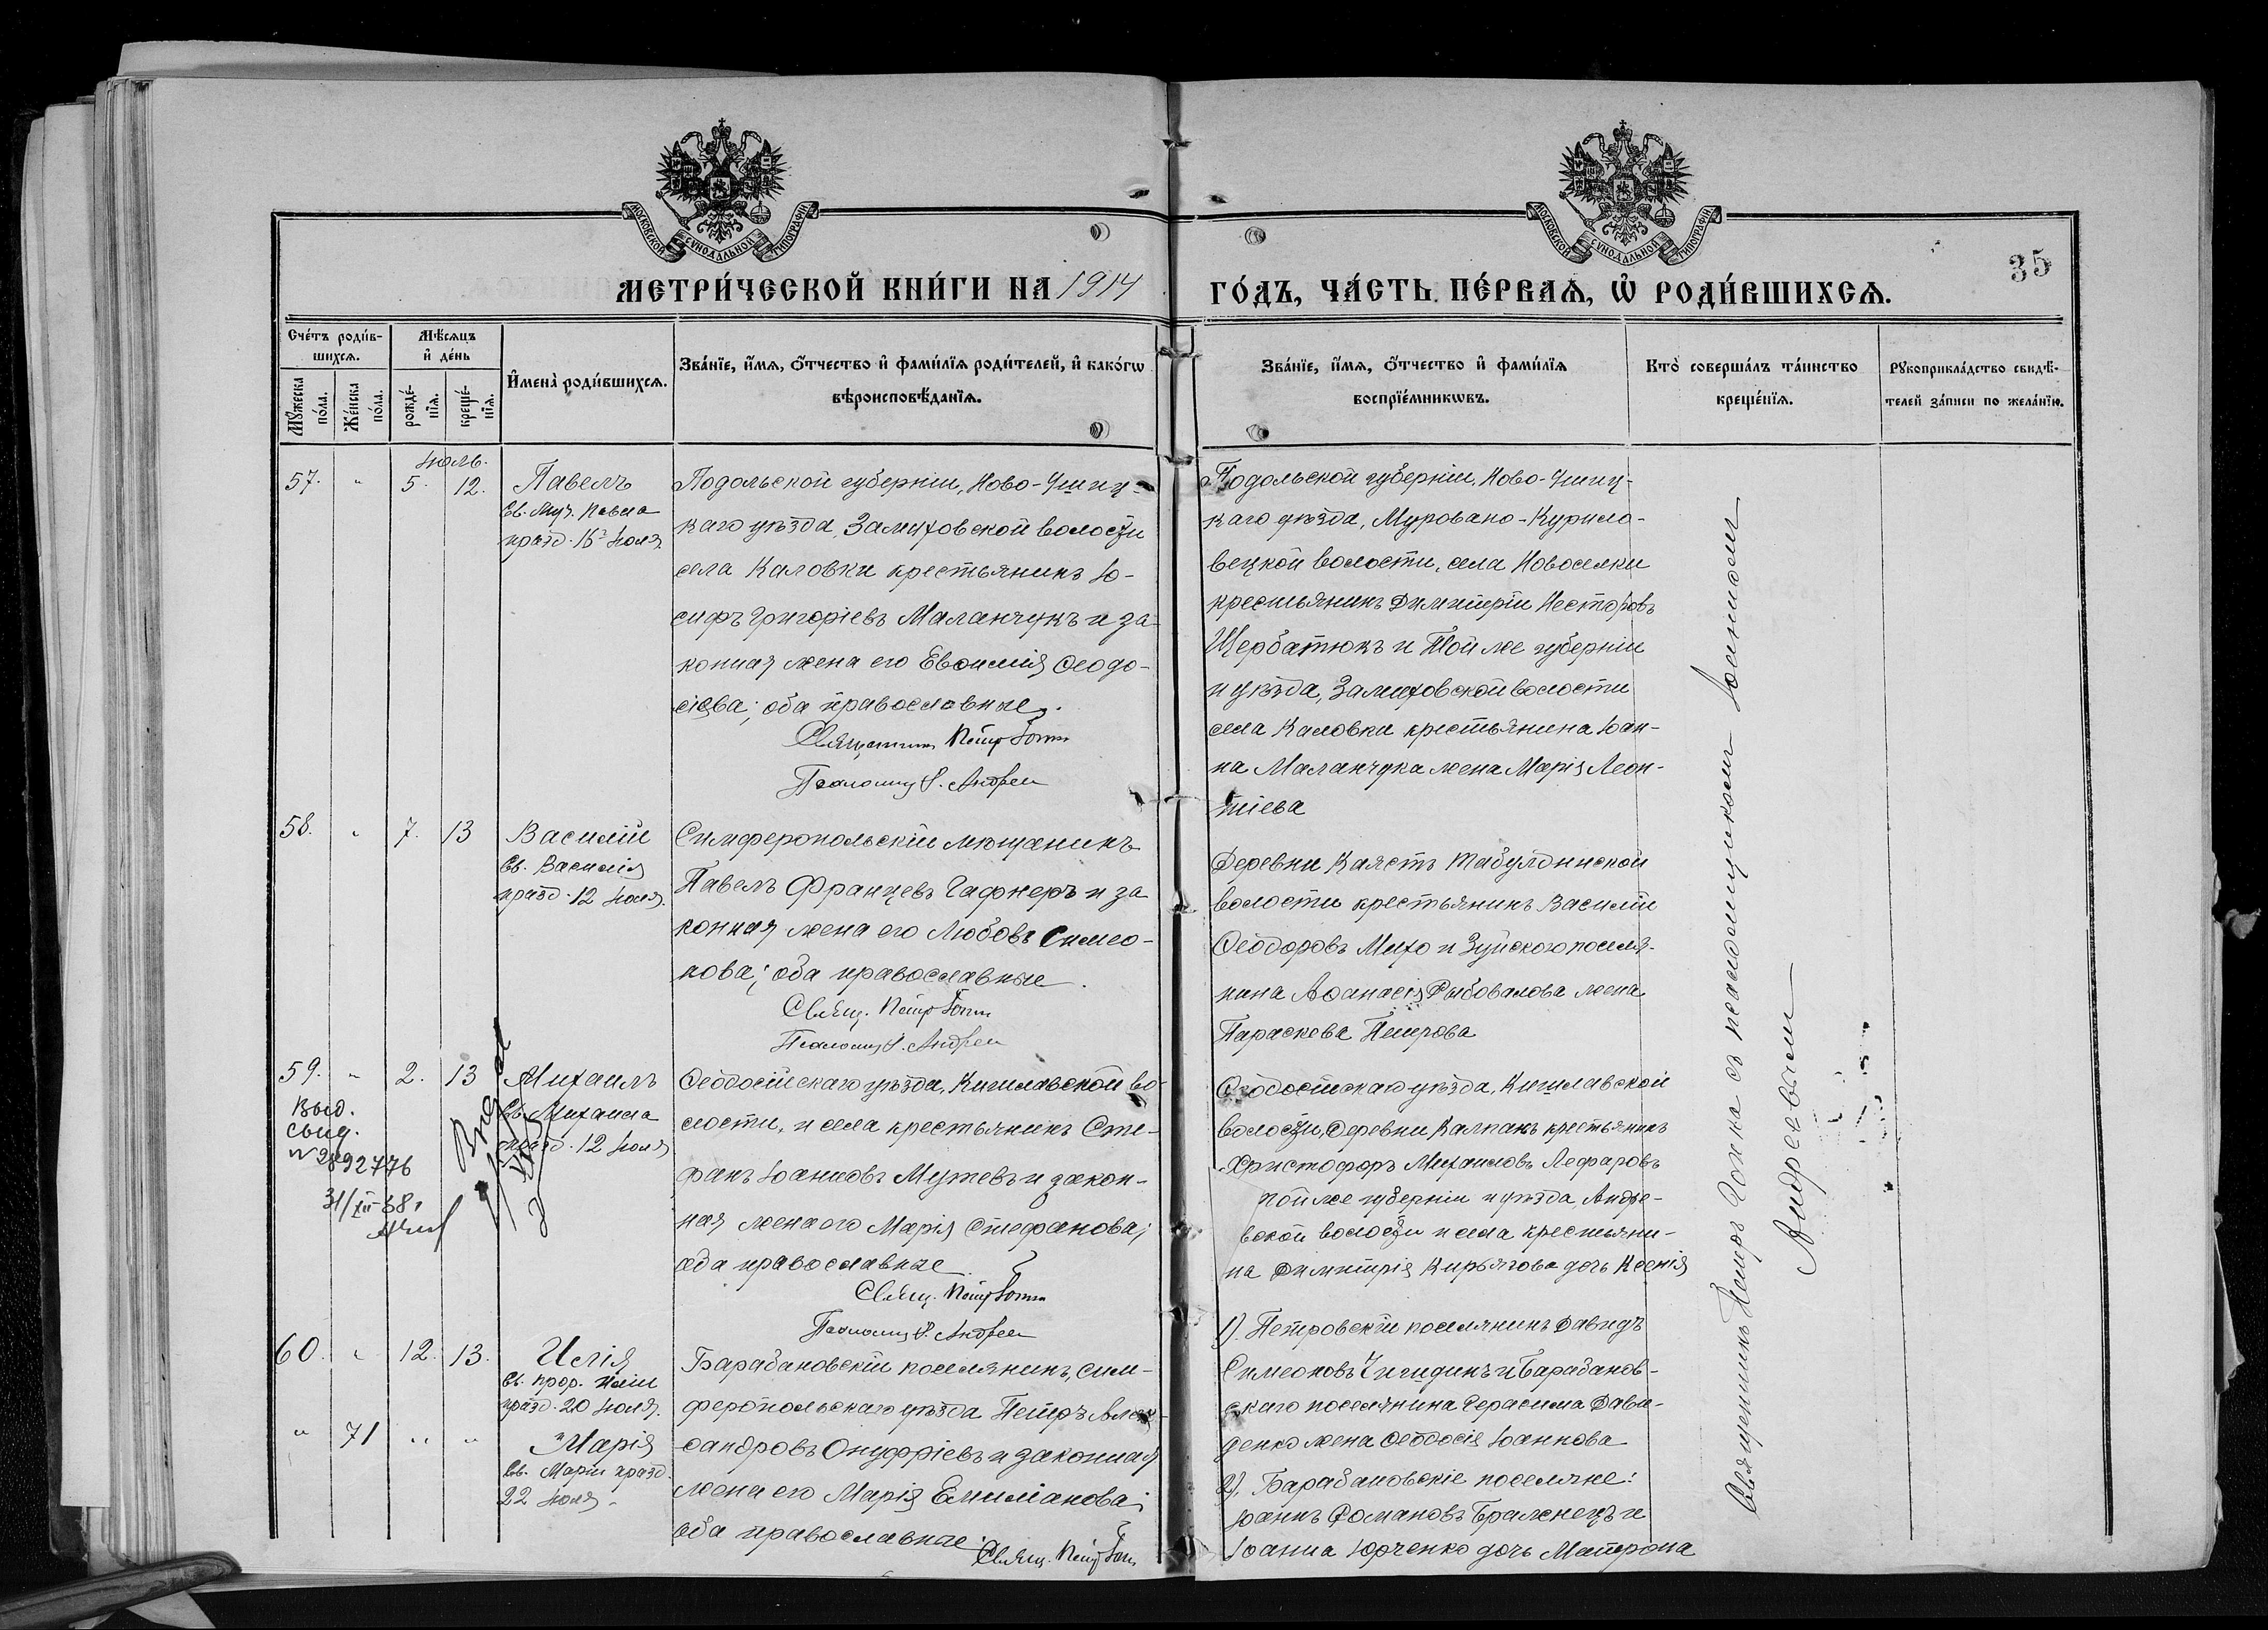 МОСКОВСКОЙ СѴНОДАЛЬНОЙ ТИПОГРАФІИ
МОСКОВСКОЙ СѴНОДАЛЬНОЙ ТИПОГРАФІИ
35
МЕТРИ́ЧЕСКОЙ КНИ́ГИ НА 1914
ГО́ДЪ, ЧА́СТЬ ПЕ́РВАѦ, Ѡ҆ РОДИ́ВШИХСѦ.
Сче́тъ роди́в-
шихсѧ.
Мꙋ́жеска по́ла.
Же́нска по́ла.
Мѣ́сѧцъ
и҆ де́нь
рожде́-
нїѧ.
креще́-
нїѧ.
И҆мена̀ роди́вшихсѧ.
Зва́нїе, и҆́мѧ, ѻ҆́тчество и҆ фами́лїѧ роди́телей, и҆ како́гѡ
вѣроисповѣ́данїѧ.
Зва́нїе, и҆́мѧ, ѻ҆́тчество и҆ фами́лїѧ
воспрїе́мникѡвъ.
Кто̀ соверша́лъ та́инство
креще́нїѧ.
Рꙋкоприкла́дство свидѣ́-
телей за́писи по жела́нїю.
Іюль.
57. " 5. 12.
Павелъ
Св. Муч. Павла
празд. 16 Іюля.
Подольской губерніи, Ново-Ушиц-
каго уѣзда, Замиховской волости
села Каловки крестьянинъ Іо-
сифъ Григоріевъ Маланчукъ и за-
конная жена его Евѳимія Ѳеодо-
сіева; оба православные.
Священникъ Петръ
Псаломщ. І. Андреи
Подольской губерніи, Ново-Ушиц-
каго уѣзда, Муровано-Курило-
вецкой волости, села Новоселки
крестьянинъ Димитрій Несторовъ
Щербатюкъ и Той же губерніи
и уѣзда, Замиховской волости
села Каловки крестьянина Іоан-
на Маланчука жена Марія Леон-
тіева
58. " 7. 13
Василій
Св. Василія
празд. 12 Іюля.
Симферопольскій мѣщанинъ
Павелъ Францевъ Гафнеръ и за
конная жена его Любовь Симео-
нова; оба православные.
Свящ. Петръ
Псаломщ. І. Андреи
Деревни Каястъ Табулдинской
волости крестьянинъ Василій
Ѳеодоровъ Михо и Зуйского поселя-
нина Аѳанасія Рыбовалова жена
Параскева Петрова
59. " 2. 13
Выд.
свид.
N 2892776
31/XII-68 г
Михаилъ
Св. Михаила
празд. 12 Іюля
Ѳеодосійскаго уѣзда, Кишлавской во-
лости, и села крестьянинъ Сте-
фанъ Іоанновъ Мутевъ и закон-
ная жена его Марія Стефанова;
оба православные.
Свящ. Петръ
Псаломщ. І. Андреи
Ѳеодосійскаго уѣзда, Кишлавской
волости, деревни Калпакъ крестьянинъ
Христофоръ Михаиловъ Лефаровъ
той же губерніи и уѣзда, Андре-
вской волости и села крестьяни-
на Димитрія Кирьякова дочь Ксенія
60. " 12. 13.
Илія
Св. прор. Иліи
празд. 20 Іюля.
" 71 " "
Марія
Св. Маріи празд.
22 Іюля.
Барабановскій поселянинъ, Сим-
феропольскаго уѣзда Петръ Алек-
сандровъ Онуфріевъ и законная
жена его Марія Емиліанова;
оба православные.
Свящ. Петръ
1). Петровскій поселянинъ Давидъ
Симеоновъ Чигидинъ и Барабанов-
скаго поселянина Герасима Дави-
денко жена Ѳеодосія Іоаннова
2). Барабановскіе поселяне:
Іоаннъ Романовъ Браженецъ и
Іоанна Юрченко дочь Матрона
Священникъ Петръ съ псаломщикомъ Іоанномъ
Андреевымъ